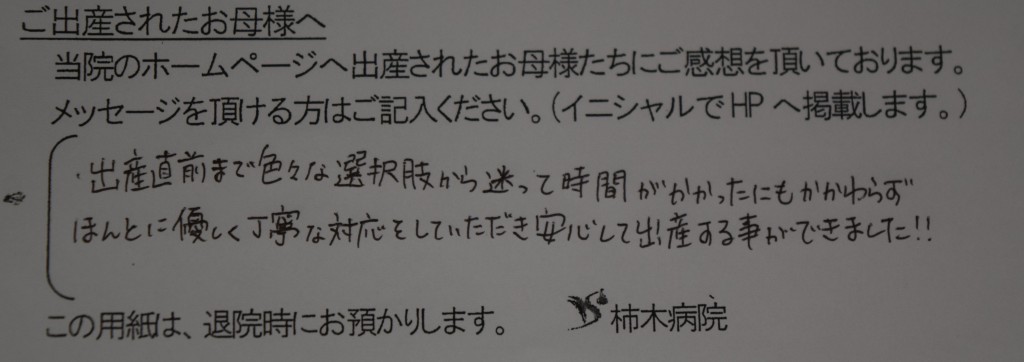 ご出産されたお母様へ
当院のホームページへ出産されたお母様たちにご感想を頂いております。
メッセージを頂ける方はご記入ください。（イニシャルでHPへ掲載します。）
・出産直前まで色々な選択肢から迷って時間がかかったにもかかわらず
ほんとに優しく丁寧な対応をしていただき安心して出産する事ができました!!
この用紙は、退院時にお預かりします。 柿木病院